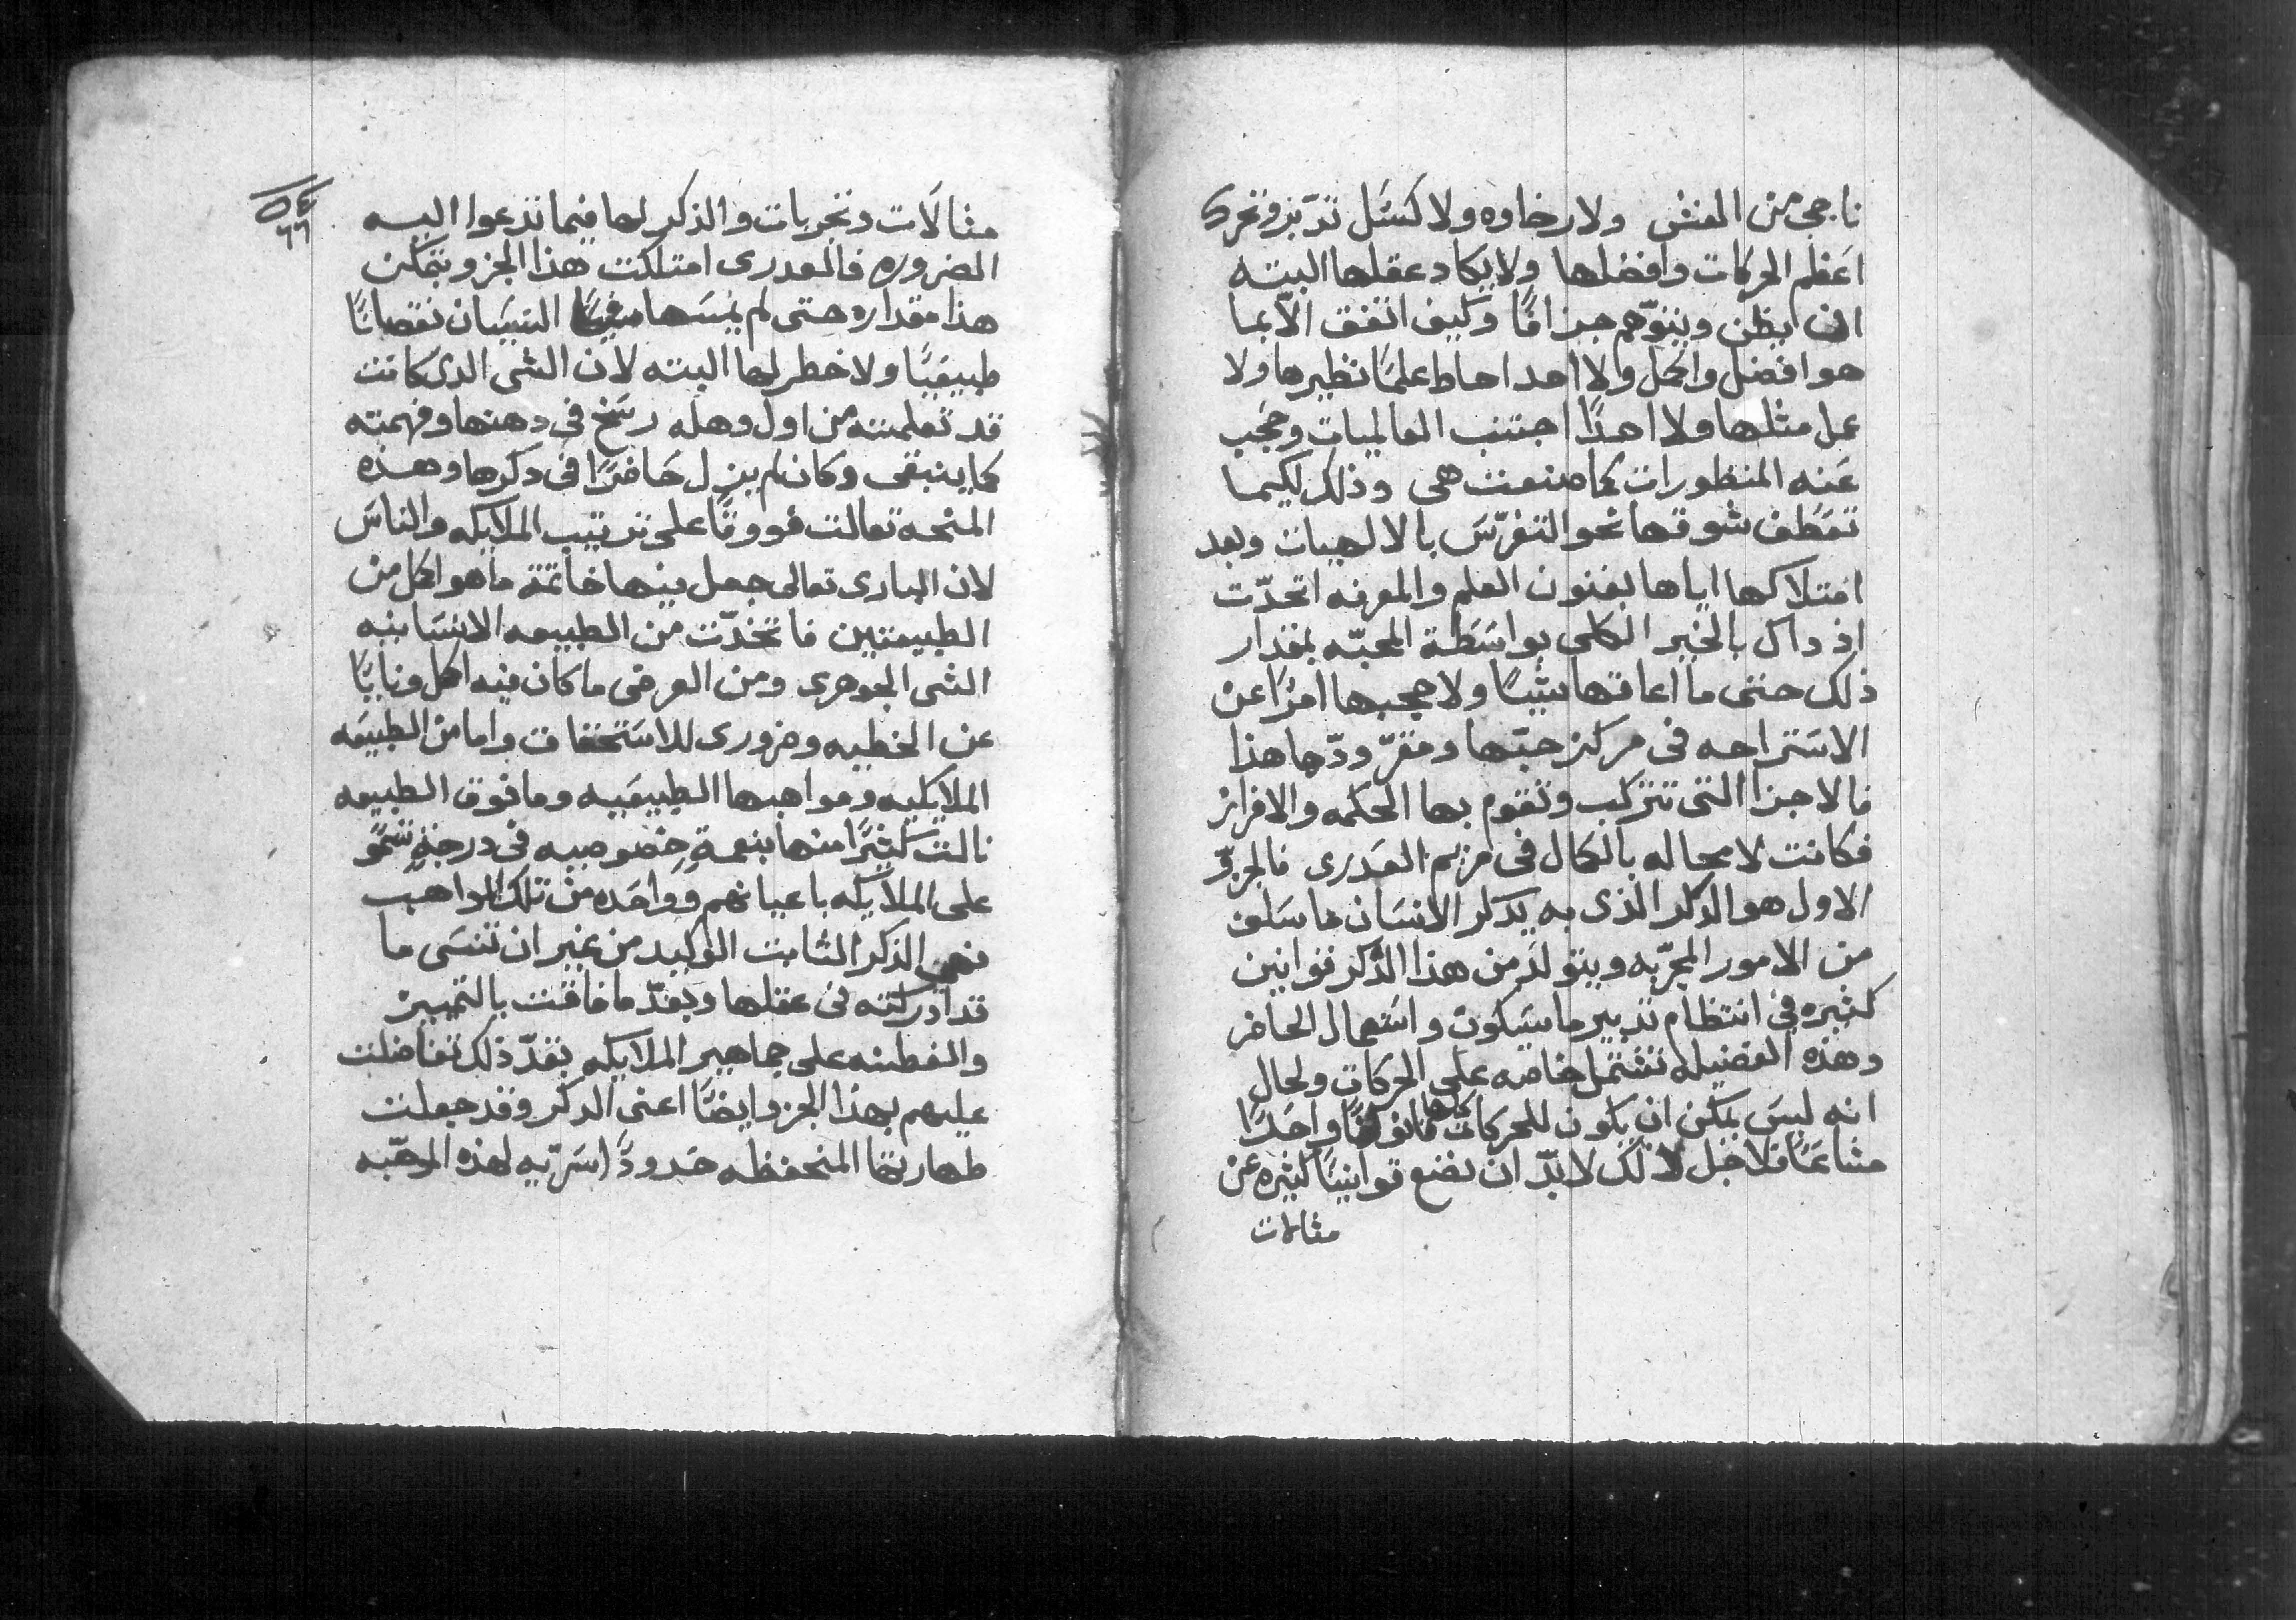 ناجي من الغش ولا رخاوه ولا كسَل تدّبر وتحرك
اعَظم الحركات وافضلها ولا يكاد عقلها البته
ان يظن ويتوّهم جزافًا وكيف اتفق الاّ بما
هو افضل واكمل ولا احد احاط علمًا نظيرها ولا
عمل مثلها ولا احدًا اجتنب العالميات وحُجب
عَنه المنظورات كما صنعت هي وذلك لكيما
تعَطف شوقها نحو التفرّسَ بالالهيات وبعد
امتلاكها اياها بفنون العلم والمعرفه اتحدّت
اذ داك بالخير الكلي بواسَطة المحبّه بمقدار
ذلك حتى ما اعاقها شيًا ولا حجبها امرًا عن
الاسَتراحه في مركز حبّها ومقرّ ودّها هذا
فالاجزا التي تتركب وتقوم بها الحكمه والافراز
فكانت لا محاله بالكمال في مريم العَدرى فالجزو
الاول هو الدكر الذى به يدكر الانسَان ما سَلف
من الامور المجرّبه ويتولدَ من هذا الذكر قوانين
كثيره في انتظام تدبير ما سَيكون واسَتعمال الحاضر
وهذه الفضيله تشتمل خاصه على الحركات ولحال
انه ليسَ يمكن ان يكون للحركات كلها قانونًا واحَدًا
مشاعًا فلاجل ذلك لا بدّ ان نضع قوانينًا كثيره عن
مثالات
٥٤
٦٦
مثالَات وتجربات والذكر لها فيما تدعوا اليه
الضروره فالعدرى امتلكت هذا الجزو بتمكن
هذا مقداره حتى لم يمسَها النسَيان نقصانًا
طبيعيًا ولا خطر لها البته لان الشى الدى كانت
قد تعلمته من اول وهله رسَخ في دهنها وفهمته
كما ينبغي وكان لم يزل حَاضرًا في دكرها وهذه
المنحه تعالت فووقًا على ترتيب الملايكه والناسَ
لان البارى تعالى جعل بينها خاتمة ما هو اكمل من
الطبيعتين فاتخذّت من الطبيعه الانسَانيه
الشى الجوهرى ومن العرضي ما كان فيه اكمل ونايًا
عن الخطيه وضرورى للاسَتحقاق واما من الطبيعَه
الملايكيه ومواهبها الطبيعَيه وما فوق الطبيعه
نالت كثيرًا منها بنعمةٍ خصوصيه في درجةٍ تسَموَ
على الملايكه باعيانهم وواحَده من تلك المواهب
فهي الذكر الثابت الوكيد من غير ان تنسَى ما
قد ادركته في عقلها وبقدّ ما فاقت بالتمييز
والفطنه على جماهير الملايكه بقدّ ذلك تفاضلت
عليهم بهذا الجزو ايضًا اعنى الدكر وقد جعلت
طهارتها المنحفظه حَدودًا سَرّيه لهذه الموهبّه